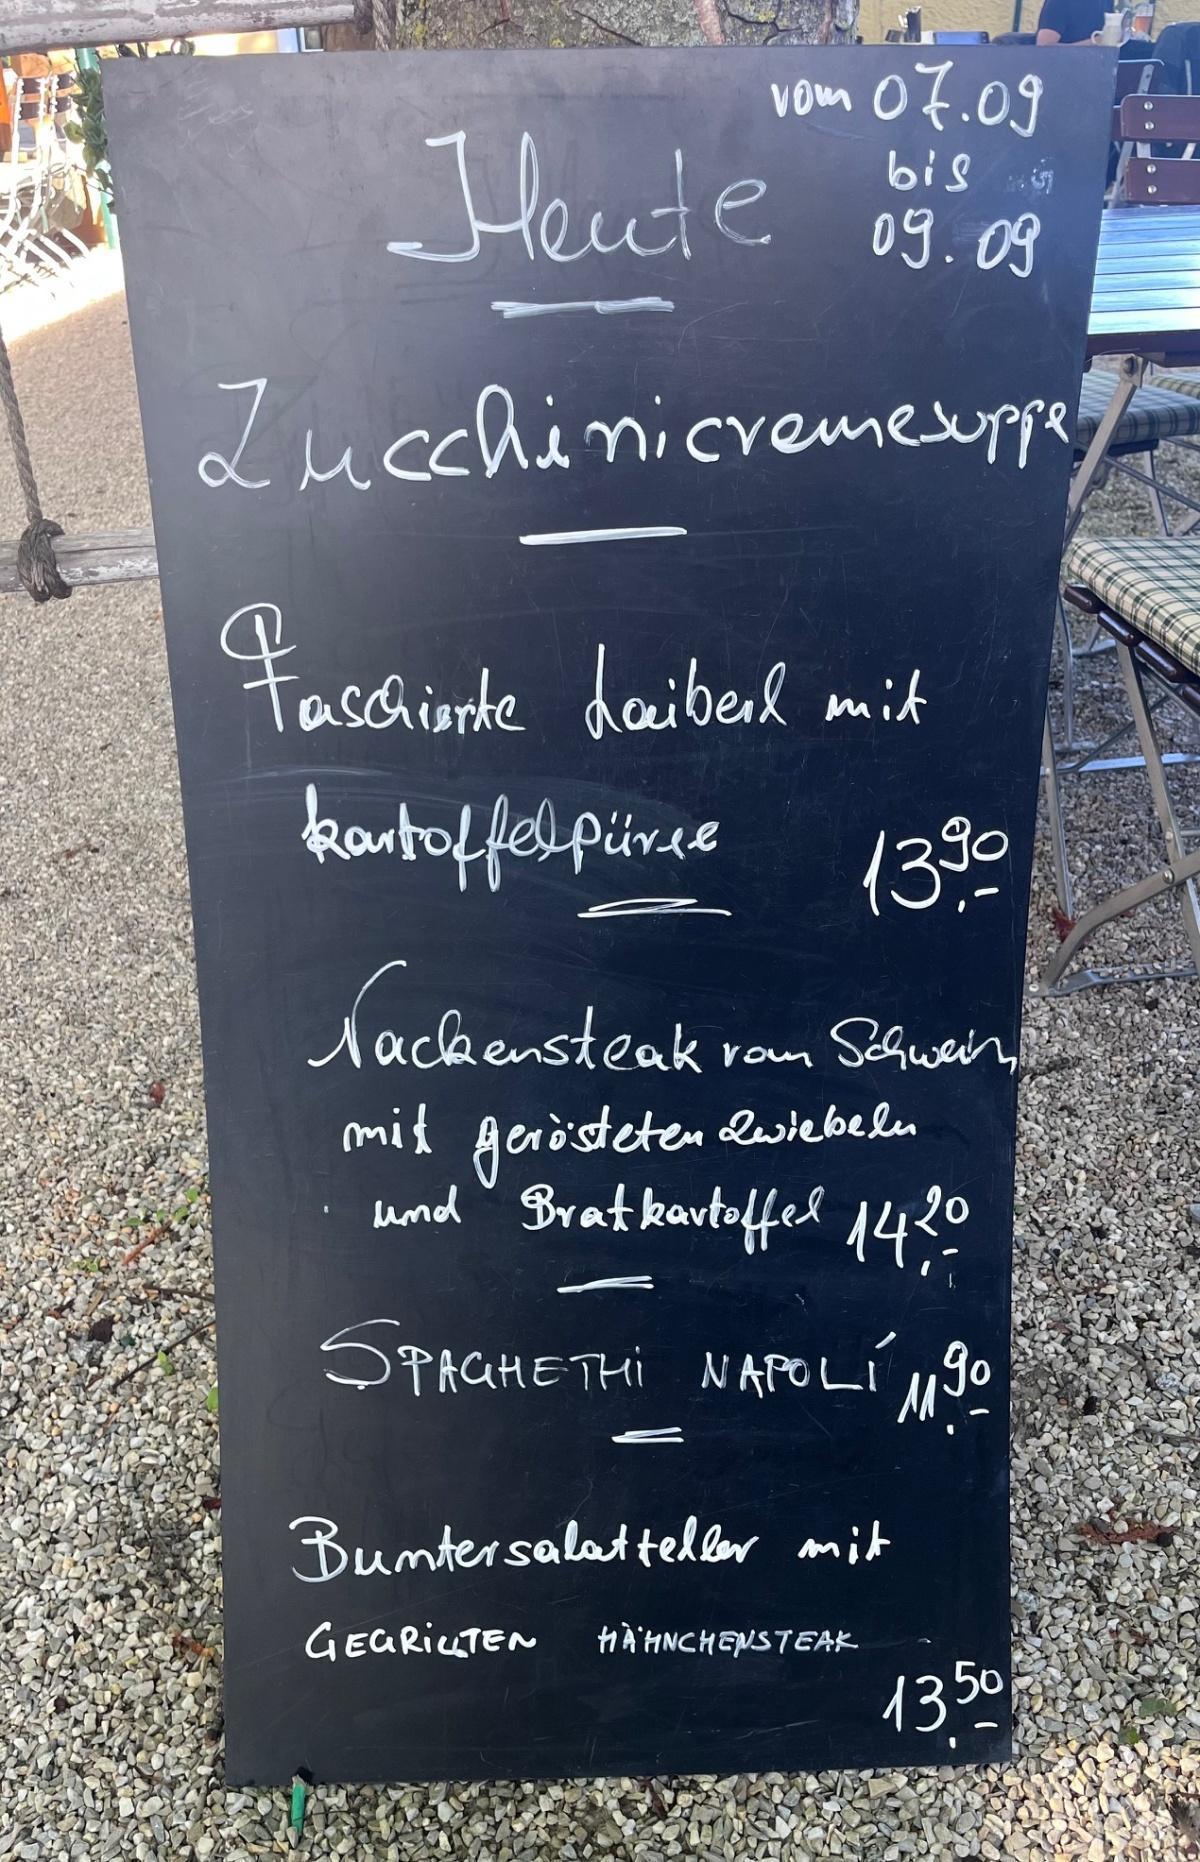 vom 07.09
bis
09.09
Heute
Zucchinicremesuppe
Faschierte Laiberl mit
kartoffelpüree 13,90
Nackensteak vom Schwein
mit gerösteten Zwiebeln
und Bratkartoffel 14,20
SPAGHETHi NAPOLÍ 11,90
Buntersalatteller mit
GEGRILLTEN HÄHNCHENSTEAK
13,50